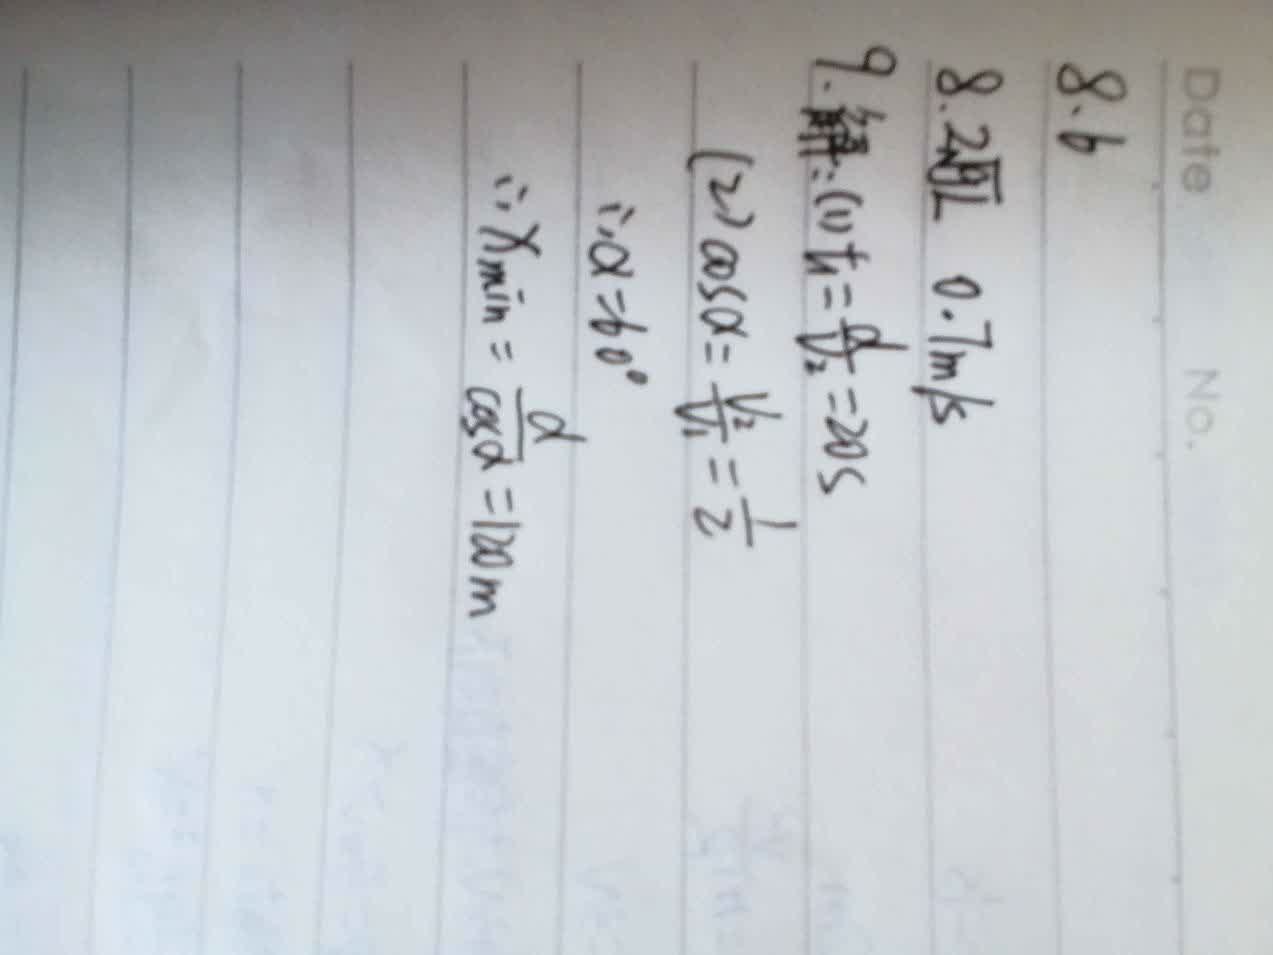 Date No.
8.6
8.2 0.7m/s
9.解:(1) t = d/v₂ = 20s
(2) cosα = v₂/v₁ = 1/2
∴α=60°
∴Xmin = d/cosα = 120m